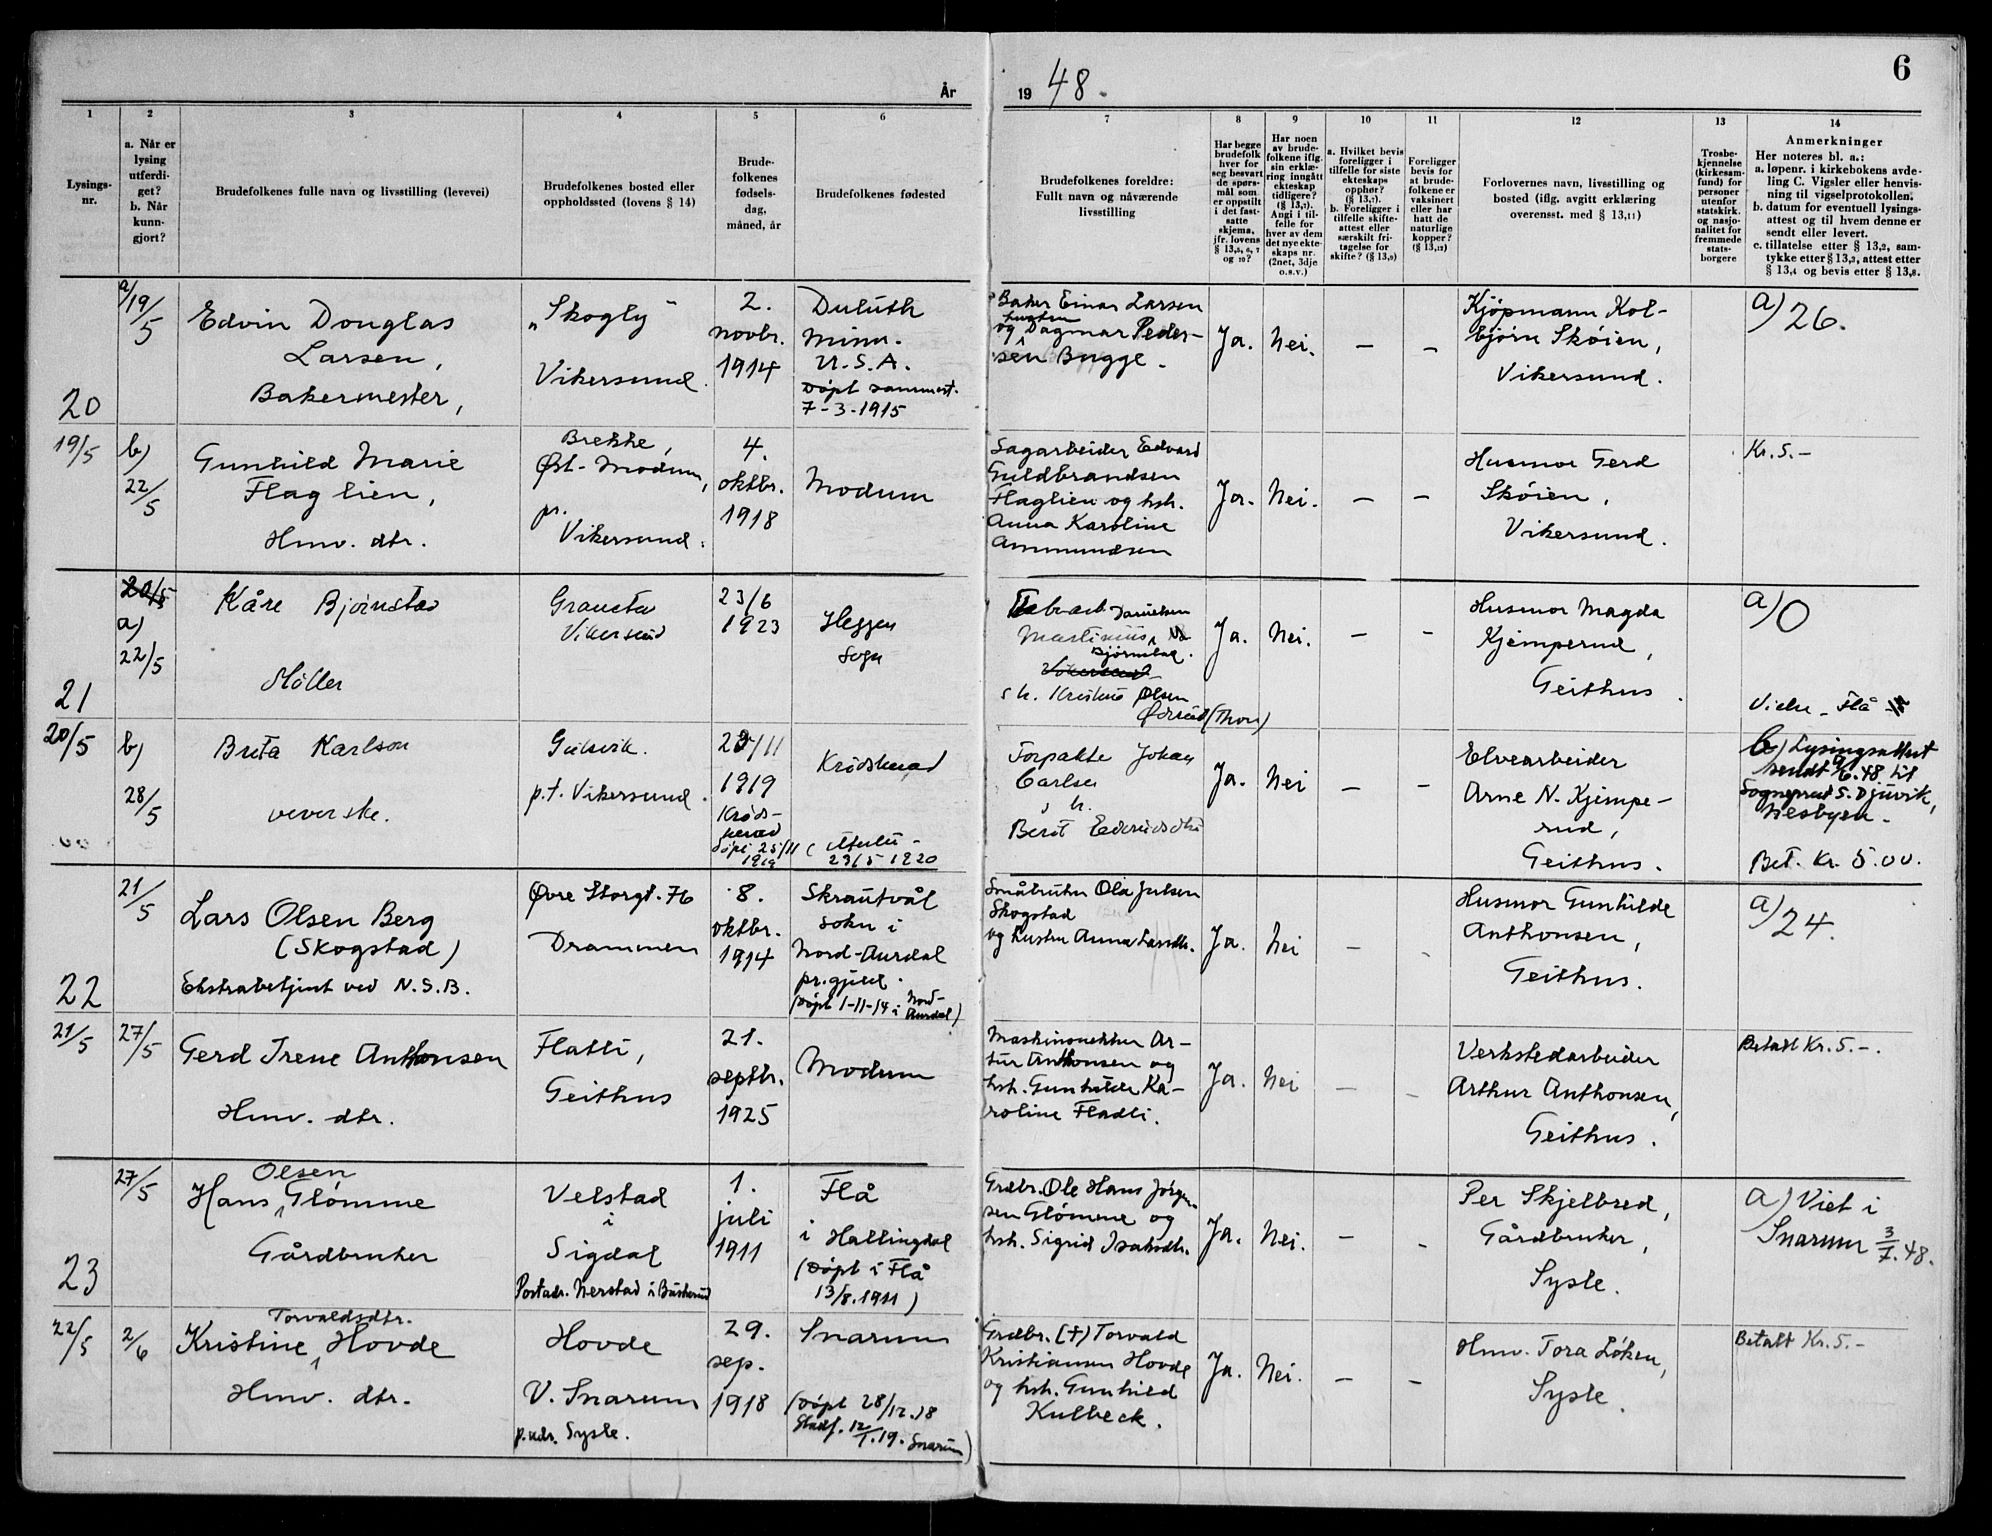 År
19 48.
6
1
2
3
4
5
6
7
8
9
10
11
12
13
14
Lysings-
nr.
a. Når er
lysing
utferdi-
get?
b. Når
kunn-
gjort?
Brudefolkenes fulle navn og livsstilling (levevei)
Brudefolkenes bosted eller
oppholdssted (lovens § 14)
Brude-
folkenes
fødsels-
dag,
måned, år
Brudefolkenes fødested
Brudefolkenes foreldre:
Fullt navn og nåværende
livsstilling
Har begge
brudefolk
hver for
seg besvart
de spørs-
mål som
er oppstilt
i det fast-
satte
skjema,
jfr. lovens
§ 13,5, 6, 7
og 10?
Har noen
av brude-
folkene iflg.
sin erklæ-
ring inngått
ekteskap
tidligere?
(§ 13,7).
Angi i til-
felle for
hver av dem
det nye ekte-
skaps nr.
(2net, 3dje
o.s.v.)
a. Hvilket bevis
foreligger i
tilfelle for siste
ekteskaps
opphør?
(§ 13,7).
b. Foreligger i
tilfelle skifte-
attest eller
særskilt fri-
tagelse for
skifte? (§ 13,9)
Foreligger
bevis for
at brude-
folkene er
vaksinert
eller har
hatt de
naturlige
kopper?
(§ 13,12)
Forlovernes navn, livsstilling og
bosted (iflg. avgitt erklæring
overensst. med § 13,11)
Trosbe-
kjennelse
(kirkesam-
fund) for
personer
utenfor
statskirk.
og nasjo-
nalitet for
fremmede
stats-
borgere
Anmerkninger
Her noteres bl. a.:
a. løpenr. i kirkebokens avde-
ling C. Vigsler eller henvis-
ning til vigselprotokollen.
b. datum for eventuell lysings-
attest og til hvem denne er
sendt eller levert.
c. tillatelse etter § 13,2, sam-
tykke etter § 13,3, attest etter
§ 13,4 og bevis etter § 13,8.
20
a/19/5
Edvin Douglas
Larsen,
Bakermester,
„Skogly"
Vikersund.
2.
novbr.
1914
Duluth
Minn.
U.S.A.
Døpt sammest.
7-3-1915
Baker Einar Larsen
og hustru Dagmar Peder-
sen Bugge.
Ja.
Nei.
—
—
Kjøpmann Kol-
bjørn Skøien,
Vikersund.
a) 26.
19/5
b)
22/5
Gunhild Marie
Flaglien,
Hmv. dtr.
Brekke,
Øst-Modum,
pr.
Vikersund.
4.
oktbr.
1918
Modum
Sagarbeider Edvard
Guldbrandsen
Flaglien og hsh.
Anna Karoline
Ammundsen
Ja.
Nei.
—
—
Husmor Gerd
Skøien,
Vikersund.
Kr. 5.-
21
20/5
a)
22/5
Kåre Bjørnstad
Møller
Vikersund
23/6
1923
Heggen
Sogn
Danielsen
Martinius
Bjørnstad.
Olsen
(Thon)
Ja.
Nei.
—
—
Husmor Magda
Kjemperud,
Geithus.
a) 0
Vielse Flå
20/5
b)
28/5
Brita Karlson
veverske.
Gulsvik.
p.t. Vikersund.
1919
Krøds-
herad
Døpt 25/11
1919
Krødsherad
23/5 1920
Forpakte Johan
Carlsen
Berit
Ja.
Nei
—
—
Elvearbeider
Arne N. Kjempe-
rud,
Geithus.
b) Lysingsattest
sendt 9/6.48 til
Sogneprest S. Djuvik,
Nesbyen.
Bet. Kr. 5.00.
22
21/5
Lars Olsen Berg
(Skogstad)
Ekstrabetjent ved N.S.B.
Øvre Storgt. 76
Drammen
8.
oktbr.
1914
Skrautvål
sokn i
Nord-Aurdal
pr.gjeld.
(Døpt 1-11-14 i Nord-
Aurdal)
Småbruker Ola Julsen
Skogstad
og hustru Anna Larsdtr.
Ja.
Nei
—
-
Husmor Gunhilde
Anthonsen,
Geithus.
a) 24.
21/5
27/5
Gerd Irene Anthonsen
Hmv. dtr.
Flatli,
Geithus
21.
septbr.
1925
Modum
Ar-
tur Anthonsen og
hsh. Gunhilde Ka-
roline Fladli.
Ja.
Nei
—
-
Verkstedarbeider
Arthur Anthonsen,
Geithus.
Betalt Kr. 5.-.
23
27/5
Olsen
Hans Glømme
Gårdbruker
Velstad
i
Sigdal
Postadr. Nerstad i Buskerud
1.
juli
1911
Flå
i Hallingdal
(Døpt i Flå
13/8.1911)
Grdbr. Ole Hans Jørgen-
sen Glømme og
hsh. Sigrid Isaksdtr.
Ja.
Nei.
—
-
Per Skjelbred,
Gårdbruker,
Sysle.
a) Viet i
Snarum 3/7.48.
22/5
2/6
Torvaldsdtr.
Kristine Hovde
Hmv. dtr.
Hovde
V. Snarum
p.adr. Sysle.
29.
sep.
1918
Snarum
(Døpt 28/12.18
Stadf. 12/1.19. Snarum)
Grdbr. (†) Torvald
Kristiansen Hovde
og hsh. Gunhild
Kulbeck.
Ja.
Nei.
—
—
Hmv. Tora Løken,
Sysle.
Betalt Kr. 5.-